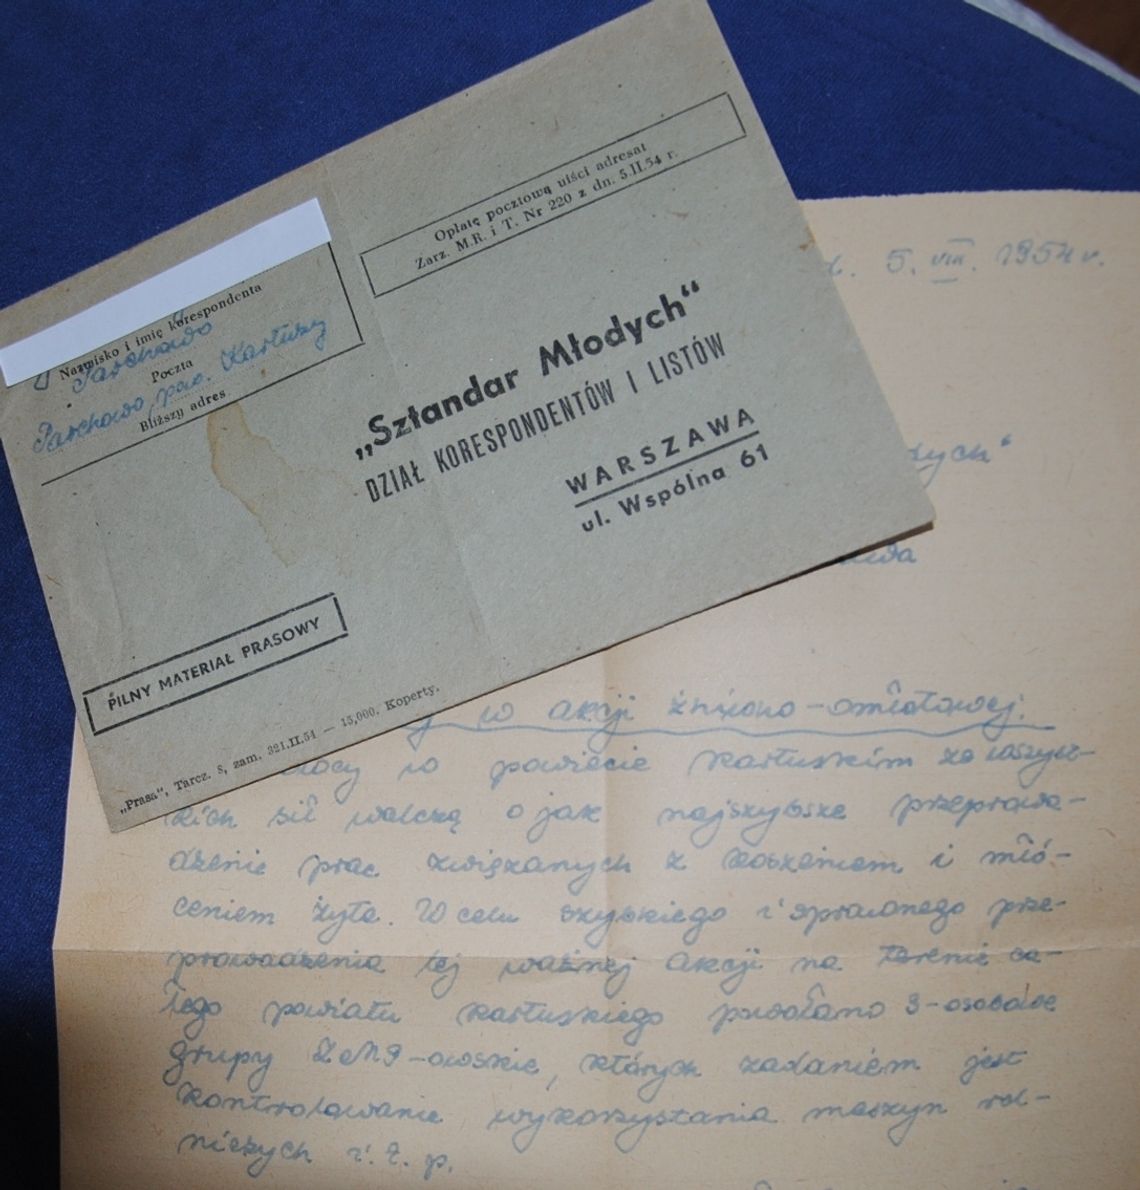 Opłatę pocztową uiści adresat
Zarz. M.R. i T. Nr 220 z dn. 5.II.54 r.
Nazwisko i imię korespondenta
Parchowo
Poczta
Parchowo, pow. Kartuzy
Bliższy adres
„Sztandar Młodych“
DZIAŁ KORESPONDENTÓW I LISTÓW
WARSZAWA
ul. Wspólna 61
PILNY MATERIAŁ PRASOWY
„Prasa“, Tarcz. 8, zam. 321.II.54 — 15,000. Koperty.
5. VIII. 1954 r.
dych“
w akcji żniwno-omłotowej.
w powiecie kartuskim ze wszyst-
kich sił walczą o jak najszybsze przeprowa-
dzenie prac związanych z koszeniem i młó-
ceniem żyta. W celu szybkiego i sprawnego prze-
prowadzenia tej ważnej akcji na terenie ca-
łego powiatu kartuskiego powołano 3-osobowe
grupy ZMP-owskie, których zadaniem jest
kontrolowanie wykorzystania maszyn rol-
niczych i t. p.